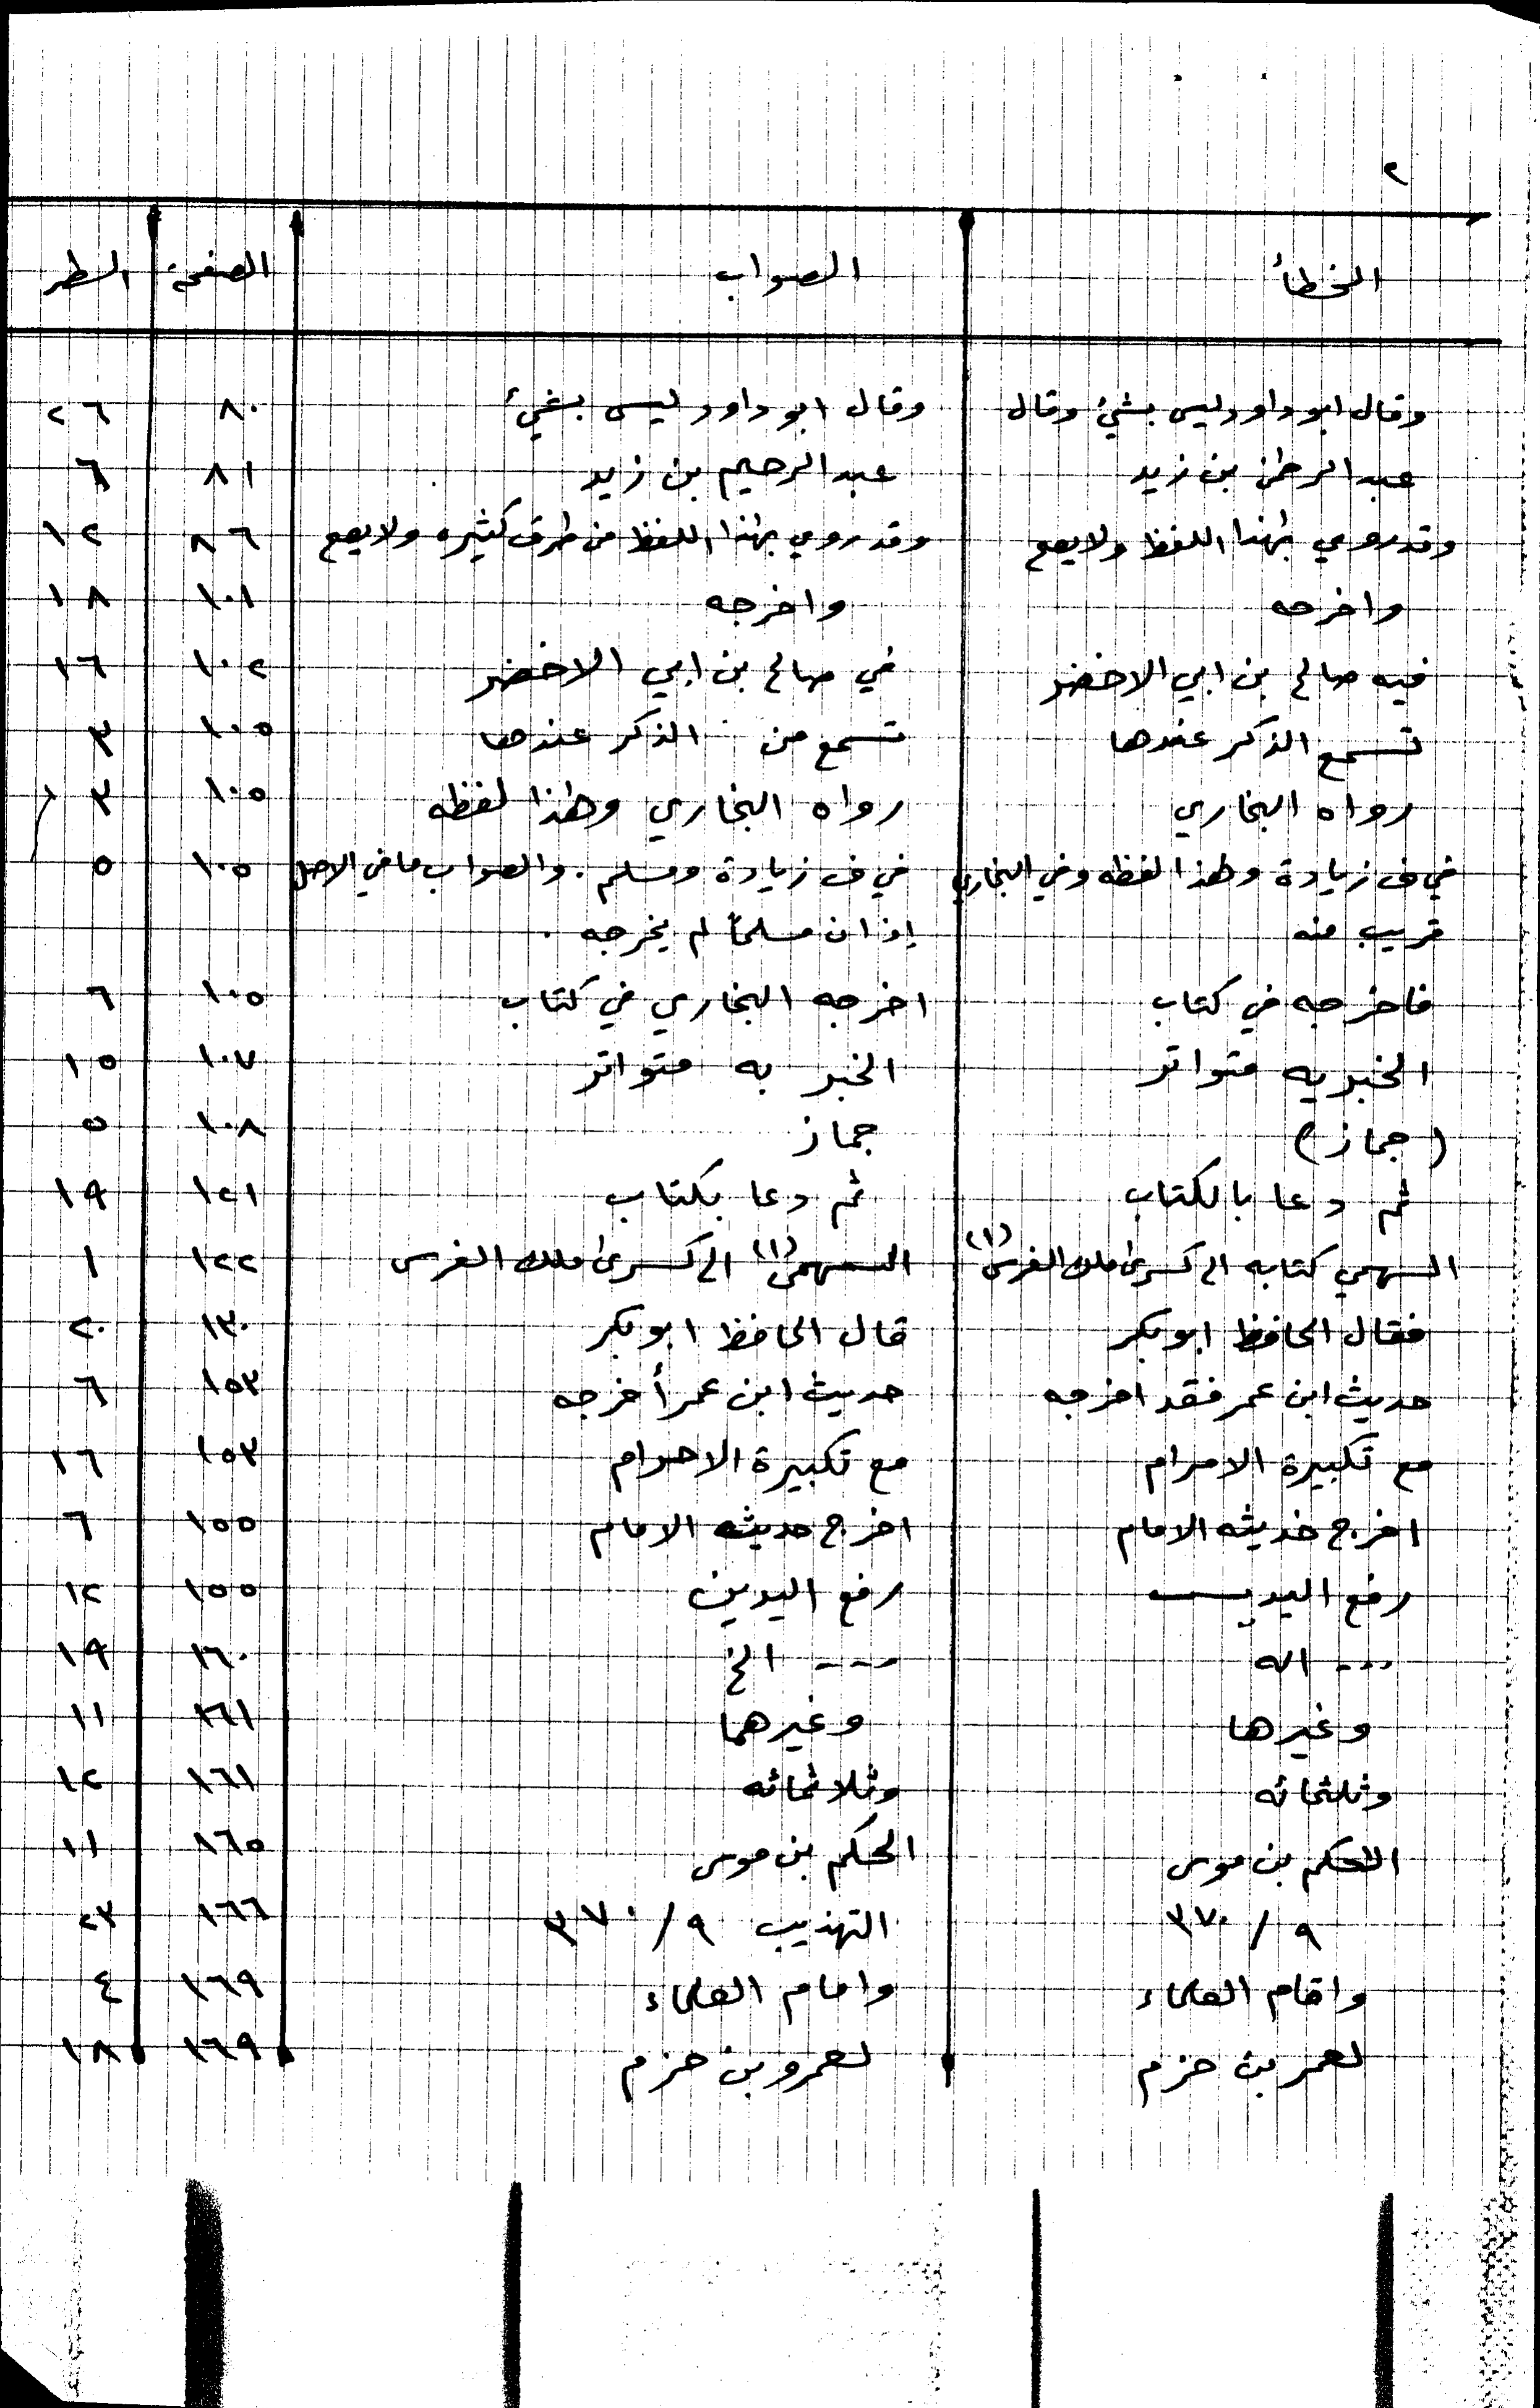 ٢
الخطأ الصواب الصفحة السطر
وقال ابو داود ليس بشيئ وقال وقال ابو داود ليس بشيئ ٨٠ ٢٦
عبد الرحمٰن بن زيد عبد الرحيم بن زيد ٨١ ٦
وقد روي بهٰذا اللفظ ولا يصح وقد روي بهٰذا اللفظ من طرق كثيره ولا يصح ٨٦ ١٢
واخرحه واخرجه ١٠١ ١٨
فيه صالح بن ابي الاخضر في صالح بن ابي الاخضر ١٠٢ ١٦
تسمع الذكر عندها تسمع من الذكر عندها ١٠٥ ٣
رواه البخاري رواه البخاري وهٰذا لفظه ١٠٥ ٣
في ف زيادة وهٰذا لفظه وفي البخاري في ف زيادة ومسلم . والصواب ما في الاصل ١٠٥ ٥
قريب منه إذ ان مسلماً لم يخرجه .
فاخرجه في كتاب اخرجه البخاري في كتاب ١٠٥ ٦
الخبريه متواتر الخبر به متواتر ١٠٧ ١٥
(جماز) جماز ١٠٨ ٥
ثم دعا بالكتاب ثم دعا بكتاب ١٢١ ١٩
السهمي كتابه الى كسرىٰ ملك الفرس (١) السهمي (١) الى كسرىٰ ملك الفرس ١٢٢ ١
فقال الحافظ ابو بكر قال الحافظ ابو بكر ١٣٠ ٢٠
حديث ابن عمر فقد اخرجه حديث ابن عمر أخرجه ١٥٣ ٦
مع تكبيرة الامرام مع تكبيرة الاحرام ١٥٣ ١٦
اخرج خديثه الامام اخرج حديثه الامام ١٥٥ ٦
رفع اليديـــ رفع اليدين ١٥٥ ١٢
... اله --- الخ ١٦٠ ١٩
وغيرها وغيرهما ١٦١ ١١
وثلثمائه وثلاثمائه ١٦١ ١٢
الاحكم بن موسى الحكم بن موسى ١٦٥ ١١
٩ / ٣٧٠ التهذيب ٩ / ٣٧٠ ١٦٦ ٢٣
واقام العلماء وامام العلماء ١٦٩ ٤
لعمر بن حزم لعمرو بن حزم ١٦٩ ١٨